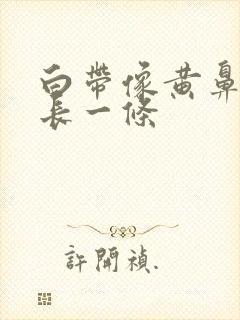 白帶像黃鼻
長一條
許開禎.